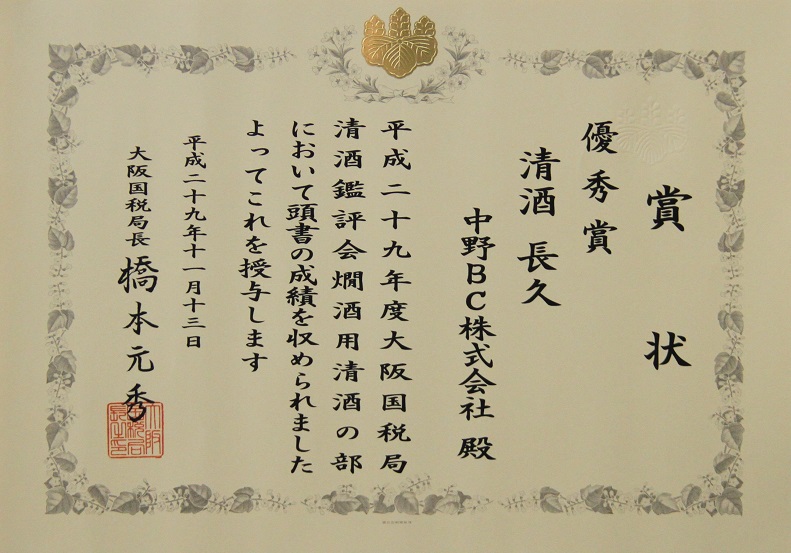 賞状
優秀賞
清酒 長久
中野BC株式会社 殿
平成二十九年度大阪国税局
清酒鑑評会燗酒用清酒の部
において頭書の成績を収められました
よってこれを授与します
平成二十九年十一月十三日
大阪国税局長 橋本元秀